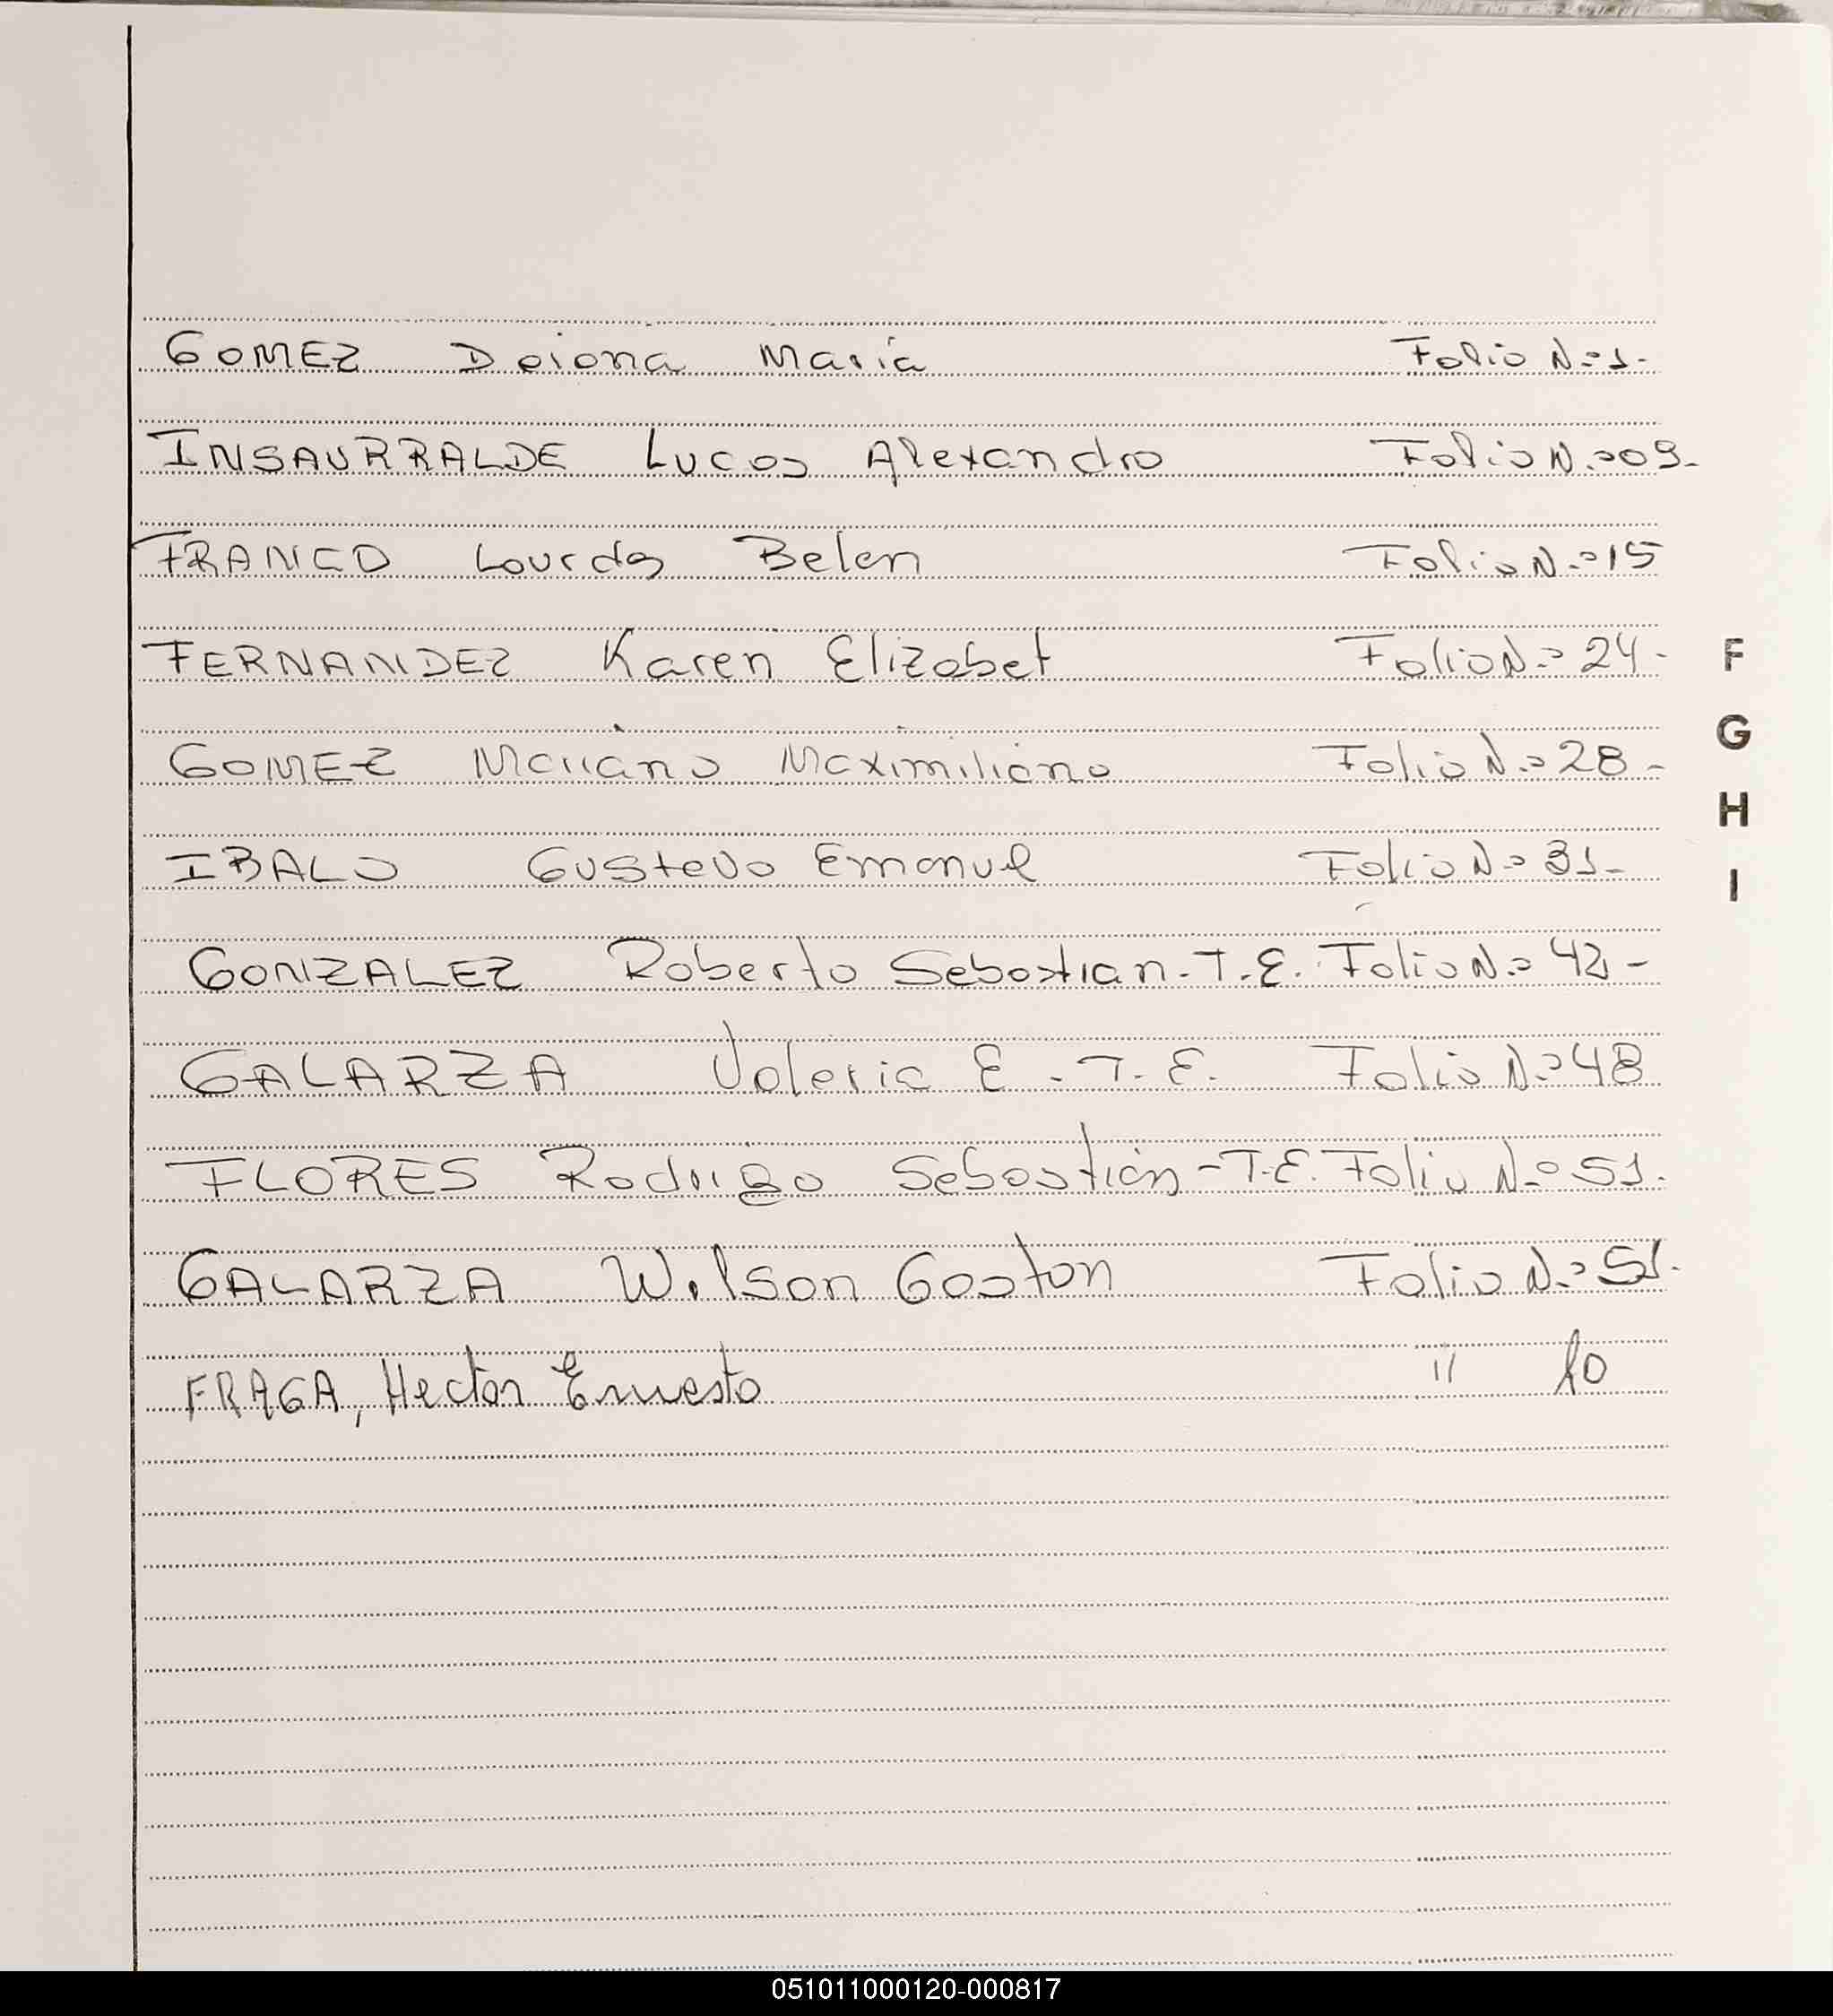 GOMEZ Daiana Maria Folio N=1-
INSAURRALDE Lucas Alexandro Folio N.º09-
FRANCO Lourdes Belen Folio N.º15
FERNANDEZ Karen Elizabet Folio N.º24-
GOMEZ Mariano Maximiliano Folio N.º28-
IBALO Gustavo Emanuel Folio Nº31-
GONZALEZ Roberto Sebastian-T.E. Folio N.º42-
GALARZA Valeria E.-T.E. Folio N.º48
FLORES Rodrigo Sebastián-T.E. Folio N.º51.
GALARZA Wilson Gaston Folio N.º51.
FRAGA, Hector Ernesto "
F
G
H
I
051011000120-000817